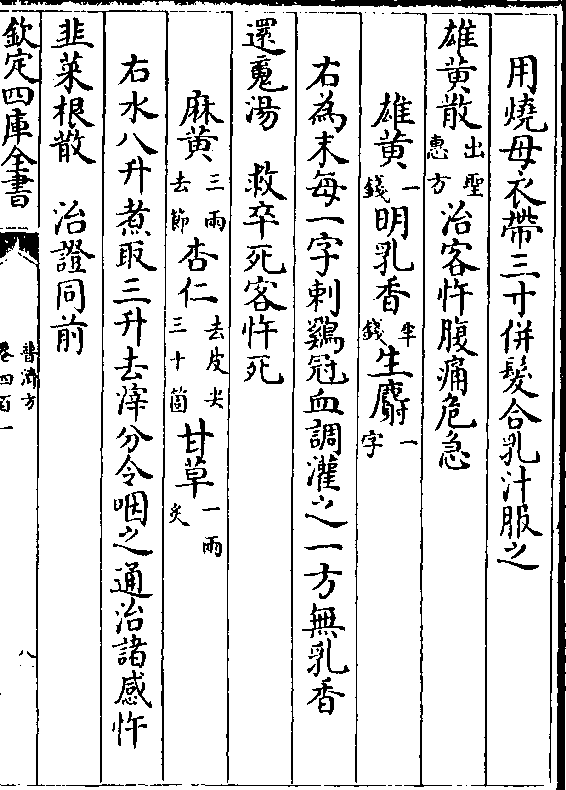 用燒母衣帶三寸併髮合乳汁服之
雄黄散出聖惠方治客忤腹痛危急
雄黄一錢明乳香半錢生麝一字
右為末每一字刺鷄冠血調灌之一方無乳香
還䰟湯　救卒死客忤死
麻黄三兩去節杏仁去皮尖三十箇甘草一兩炙
右水八升煮取三升去滓分令咽之通治諸感忤
韭菜根散　治證同前
欽定四庫全書
普濟方
卷四百一
八